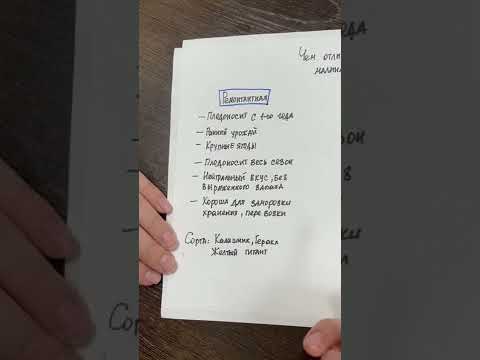 Чем отли
малин
Ремонтантная
— Плодоносит с 1-го года
— Ранний урожай
— Крупные ягоды
— Плодоносит весь сезон
— Нейтральный вкус, без
выраженного запаха
— Хороша для заморозки
хранения, перевозки
Сорта: Калашник, Геракл
Желтый гигант
Сорта